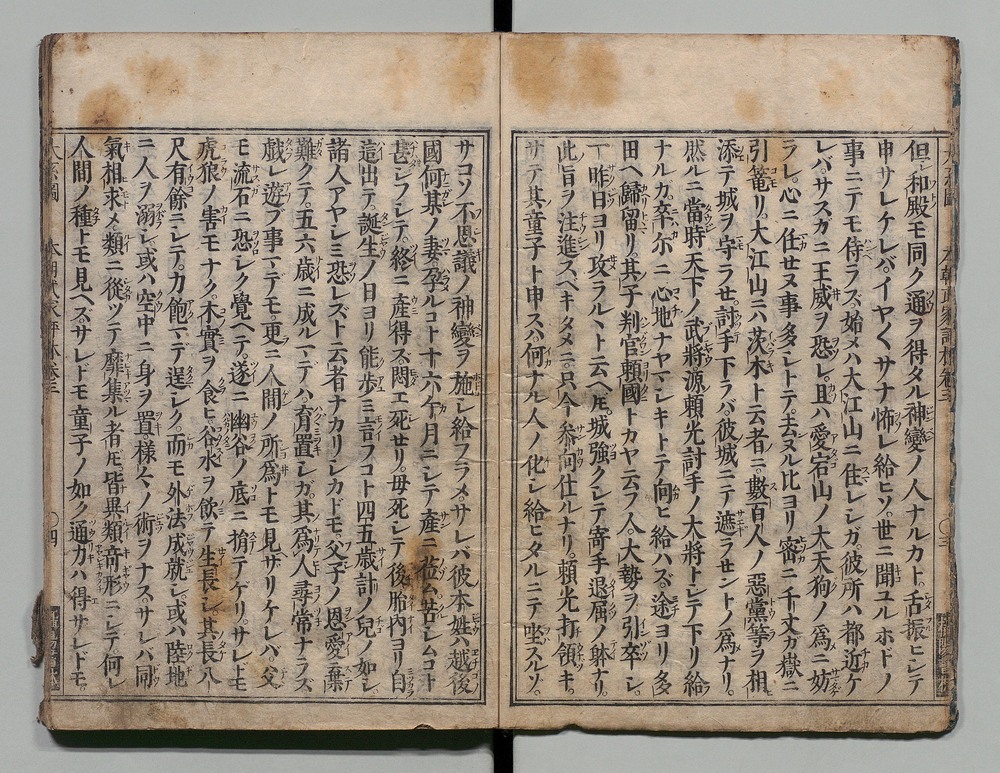 但シ和殿モ同ク通ヲ得タル神變ノ人ナルカト。舌振ヒシテ
申サレケレバ。イヤ〱サナ怖レ給ヒソ。世ニ聞ユルホドノ
事ニテモ侍ラズ。始メハ大江山ニ住シシガ彼所ハ都近ケ
レバ。サスガニ王威ヲ恐レ。且ハ愛宕山ノ大天狗ノ爲ニ妨
ラレ。心ニ任セヌ事多シトテ。去ヌル比ヨリ密ニ千丈カ嶽ニ
引籠リ。大江山ニハ茨木ト云者ニ。數百人ノ惡黨等ヲ相
添テ城ヲ守ラセ。討手下ラバ彼城ニテ遮ラセントノ爲ナリ。
然ルニ當時天下ノ武將源頼光討手ノ大將トシテ下リ給
ナルガ。卒尓ニ心地ナヤマシキトテ向ヒ給ハズ。途ヨリ多
田ヘ歸留リ。其子判官頼國トカヤ云フ人。大勢ヲ引卒シ。
一昨日ヨリ攻ラルヽト云ヘ𪜈。城強クシテ寄手退屈ノ躰ナリ。
此旨ヲ注進スベキタメニ。只今參向仕ルナリ。頼光打領キ。
サテ其童子ト申スハ。何ナル人ノ化シ給ヒタルニテ坐スルゾ。
サコソ不思議ノ神變ヲ施シ給フラメ。サレバ彼本姓越後
國何某ノ妻孕ルコト十六ケ月ニシテ産ニ莅ム。苦シムコト
甚シフシテ。終ニ産得ズ。悶エ死セリ。母死シテ後胎内ヨリ自
這出テ。誕生ノ日ヨリ能歩ミ言フコト四五歳計ノ兒ノ如シ。
諸人アヤシミ恐レズト云者ナカリシカドモ。父子ノ恩愛棄
難クテ。五六歳ニ成ルマデハ育置シガ。其爲人尋常ナラズ。
戯レ遊ブ事マデモ。更ニ人間ノ所爲トモ見ザリケレバ。父
モ流石ニ恐シク覺ヘテ。遂ニ幽谷ノ底ニ捐テケリ。サレドモ
虎狼ノ害モナク。木實ヲ食ヒ谷水ヲ飲テ生長シ。其長八
尺有餘ニシテ。力飽マデ逞シク。而モ外法成就シ。或ハ陸地
ニ人ヲ溺シ或ハ空中ニ身ヲ置。樣々ノ術ヲナス。サレバ同
氣相求メ。類ニ從ツテ靡集ル者𪜈。皆異類竒形ニシテ。何レ
人間ノ種トモ見ヘズ。サレドモ童子ノ如ク通力ハ得サレドモ。